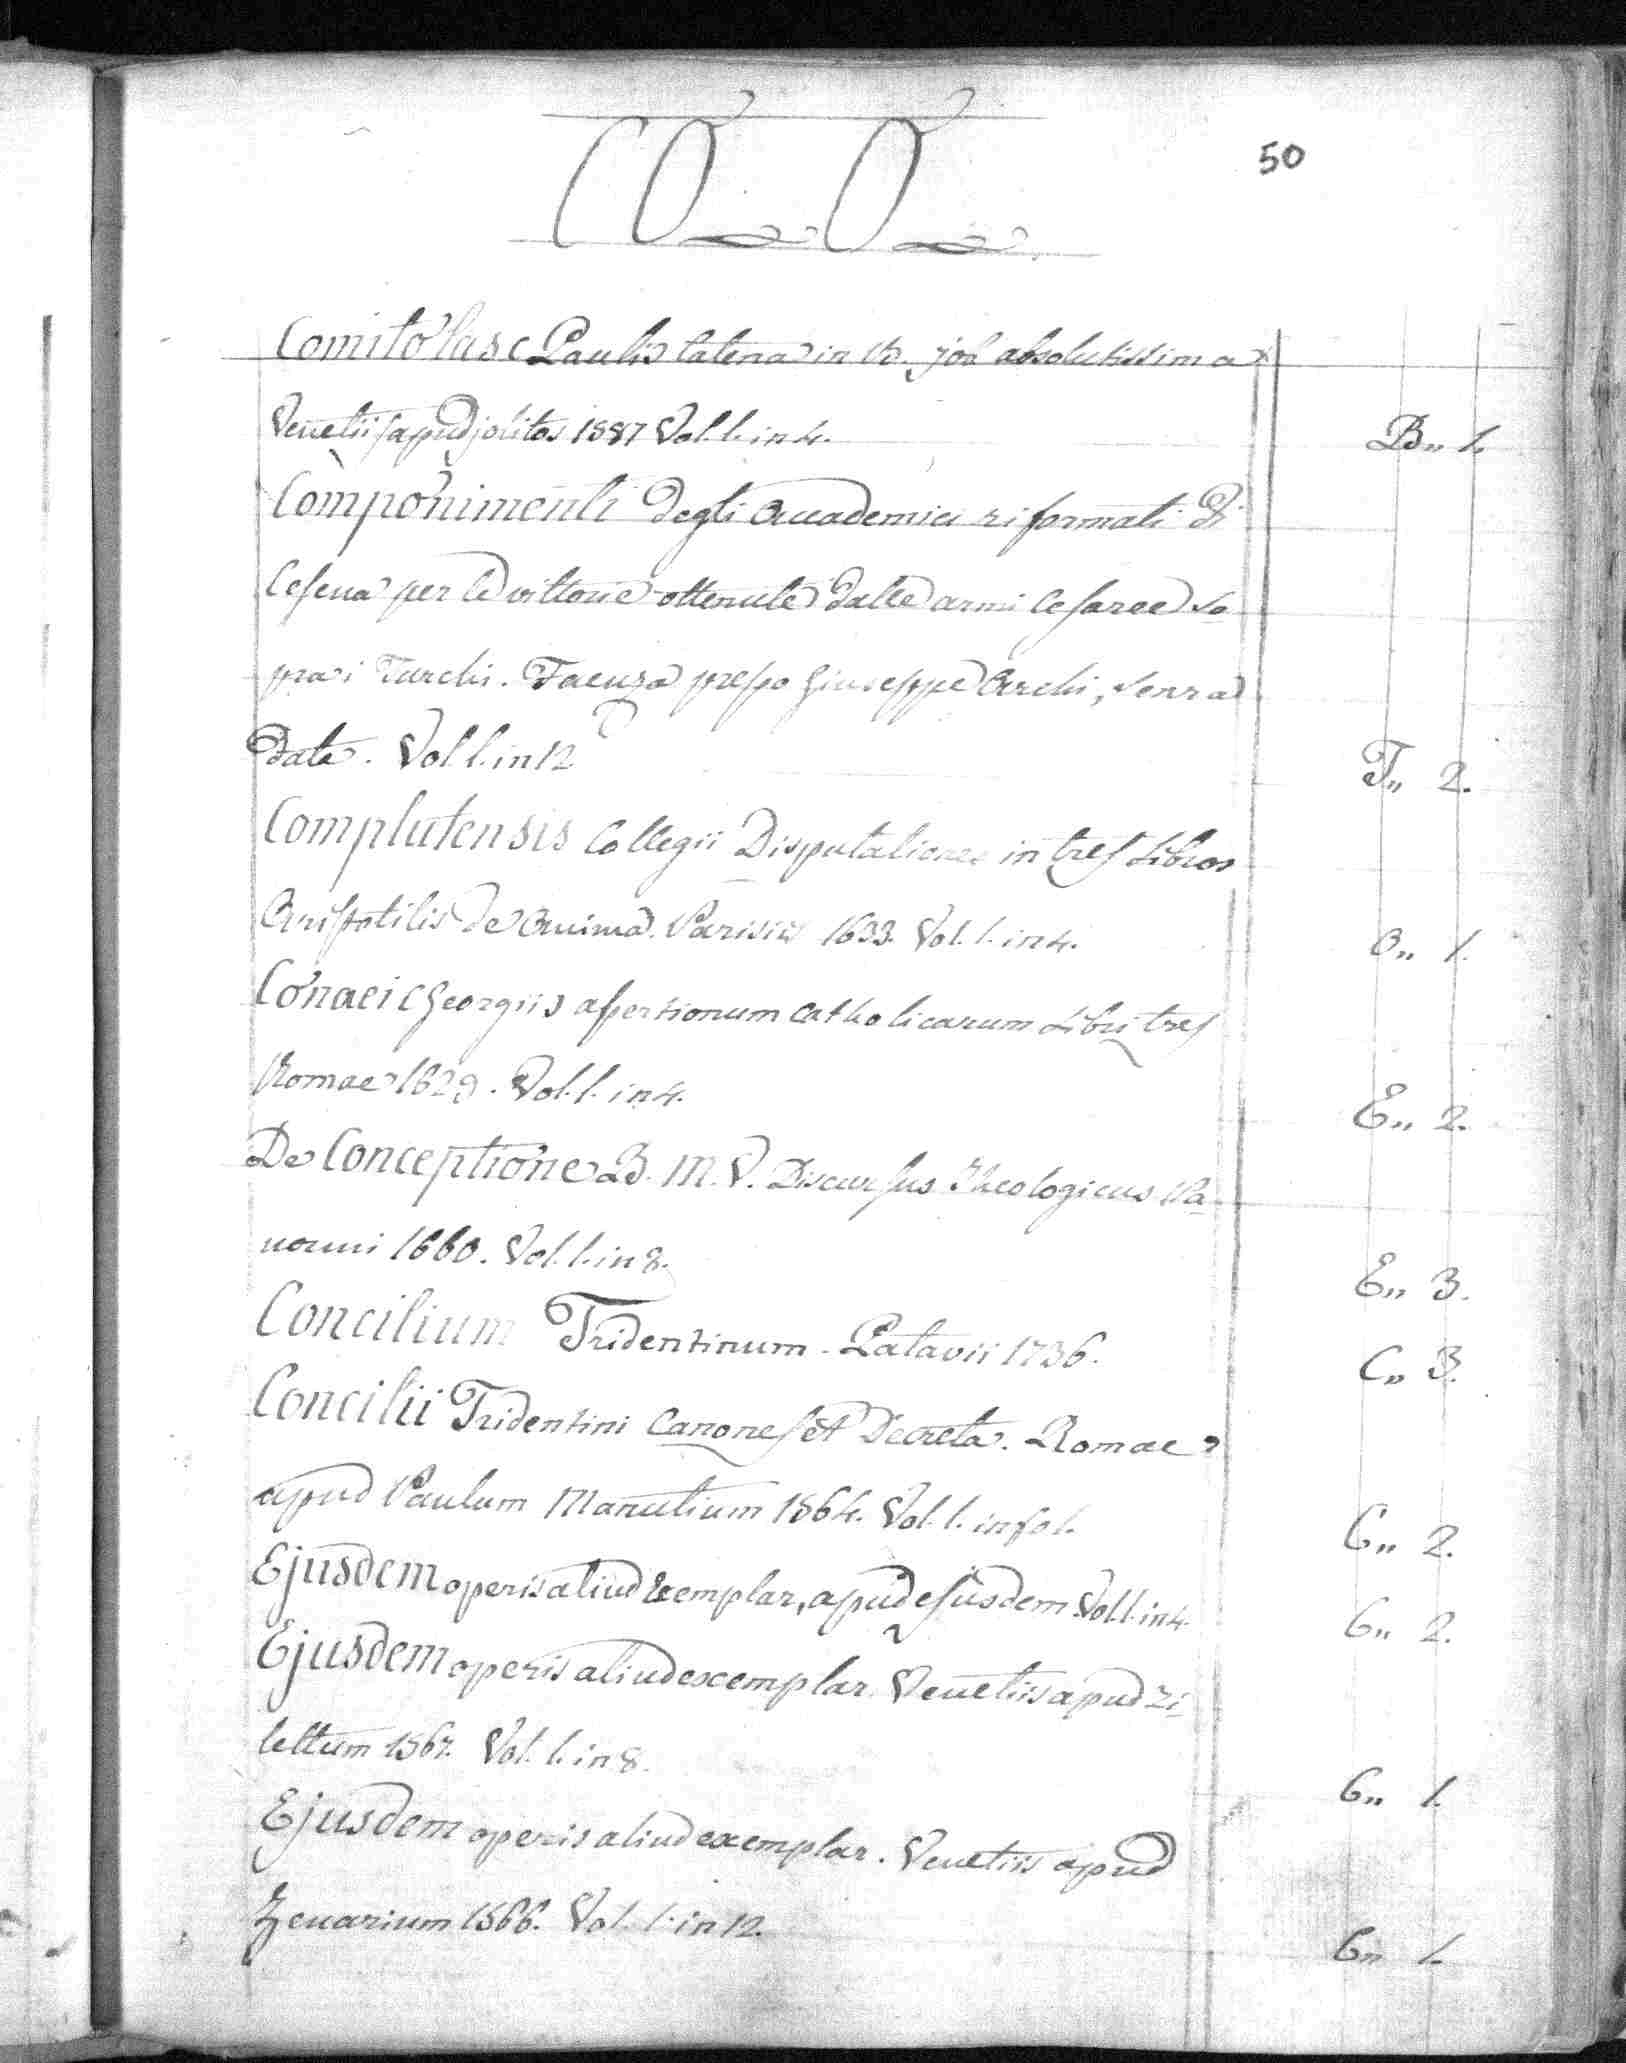 50
CO O
Comitolas (Pauli) Catena in B. Job absolutissima
Venetiis apud Jolitos 1587 Vol. 1. in 4. B,, 1.
Componimenti degli Accademici riformati di
Cesena per le vittorie ottenute dalle armi Cesaree so
pra i Turchi. Faenza presso Giuseppe Archi, senza
data. Vol 1. in 12 T,, 2.
Complutensis Collegii Disputationes in tres Libros
Aristotilis de Anima. Parisiis 1633. Vol. 1. in 4. O,, 1.
Conaei (Georgii) assertionum catholicarum Libri tres
Romae 1629. Vol. 1. in 4. E,, 2.
De Conceptione B. M. V. Discursus Theologicus Pa
normi 1660. Vol. 1. in 8. E,, 3.
Concilium Tridentinum. Patavii 1736. C,, 3.
Concilii Tridentini Canones et Decreta. Romae
apud Paulum Manutium 1564. Vol. 1. in fol. C,, 2.
Ejusdem operis aliud Exemplar, apud ejusdem Vol 1. in 4. C,, 2.
Ejusdem operis aliud exemplar. Venetiis apud Zi
lettum 1567. Vol. 1. in 8. C,, 1.
Ejusdem operis aliud exemplar. Venetiis apud
Zenarium 1566. Vol. 1. in 12. C,, 1.